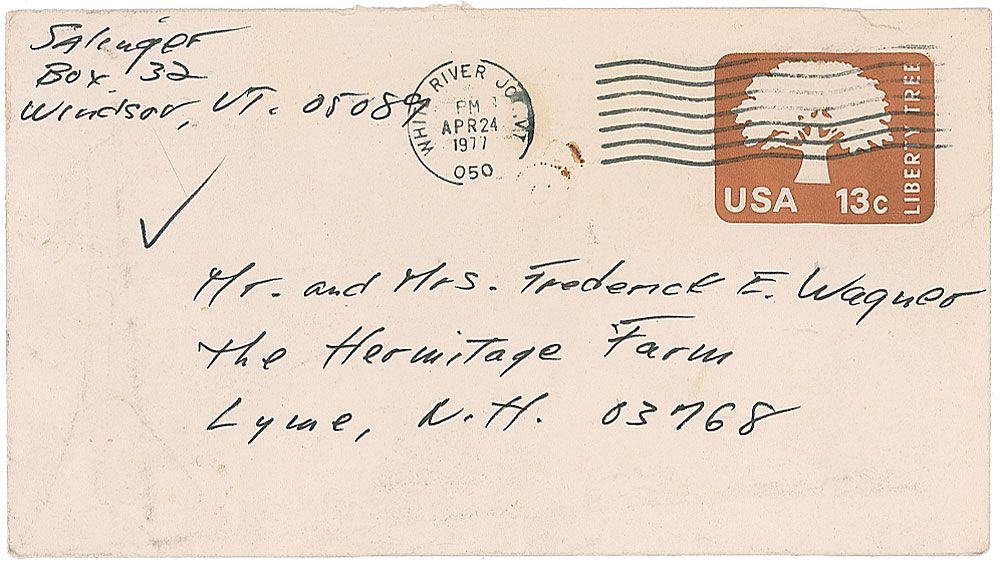 Salinger
Box 32
Windsor, VT. 05089
WHITE RIVER JCT. VT
PM
APR 24
1977
050
USA 13c
LIBERTY TREE
Mr. and Mrs. Frederick E. Wagner
The Hermitage Farm
Lyme, N.H. 03768